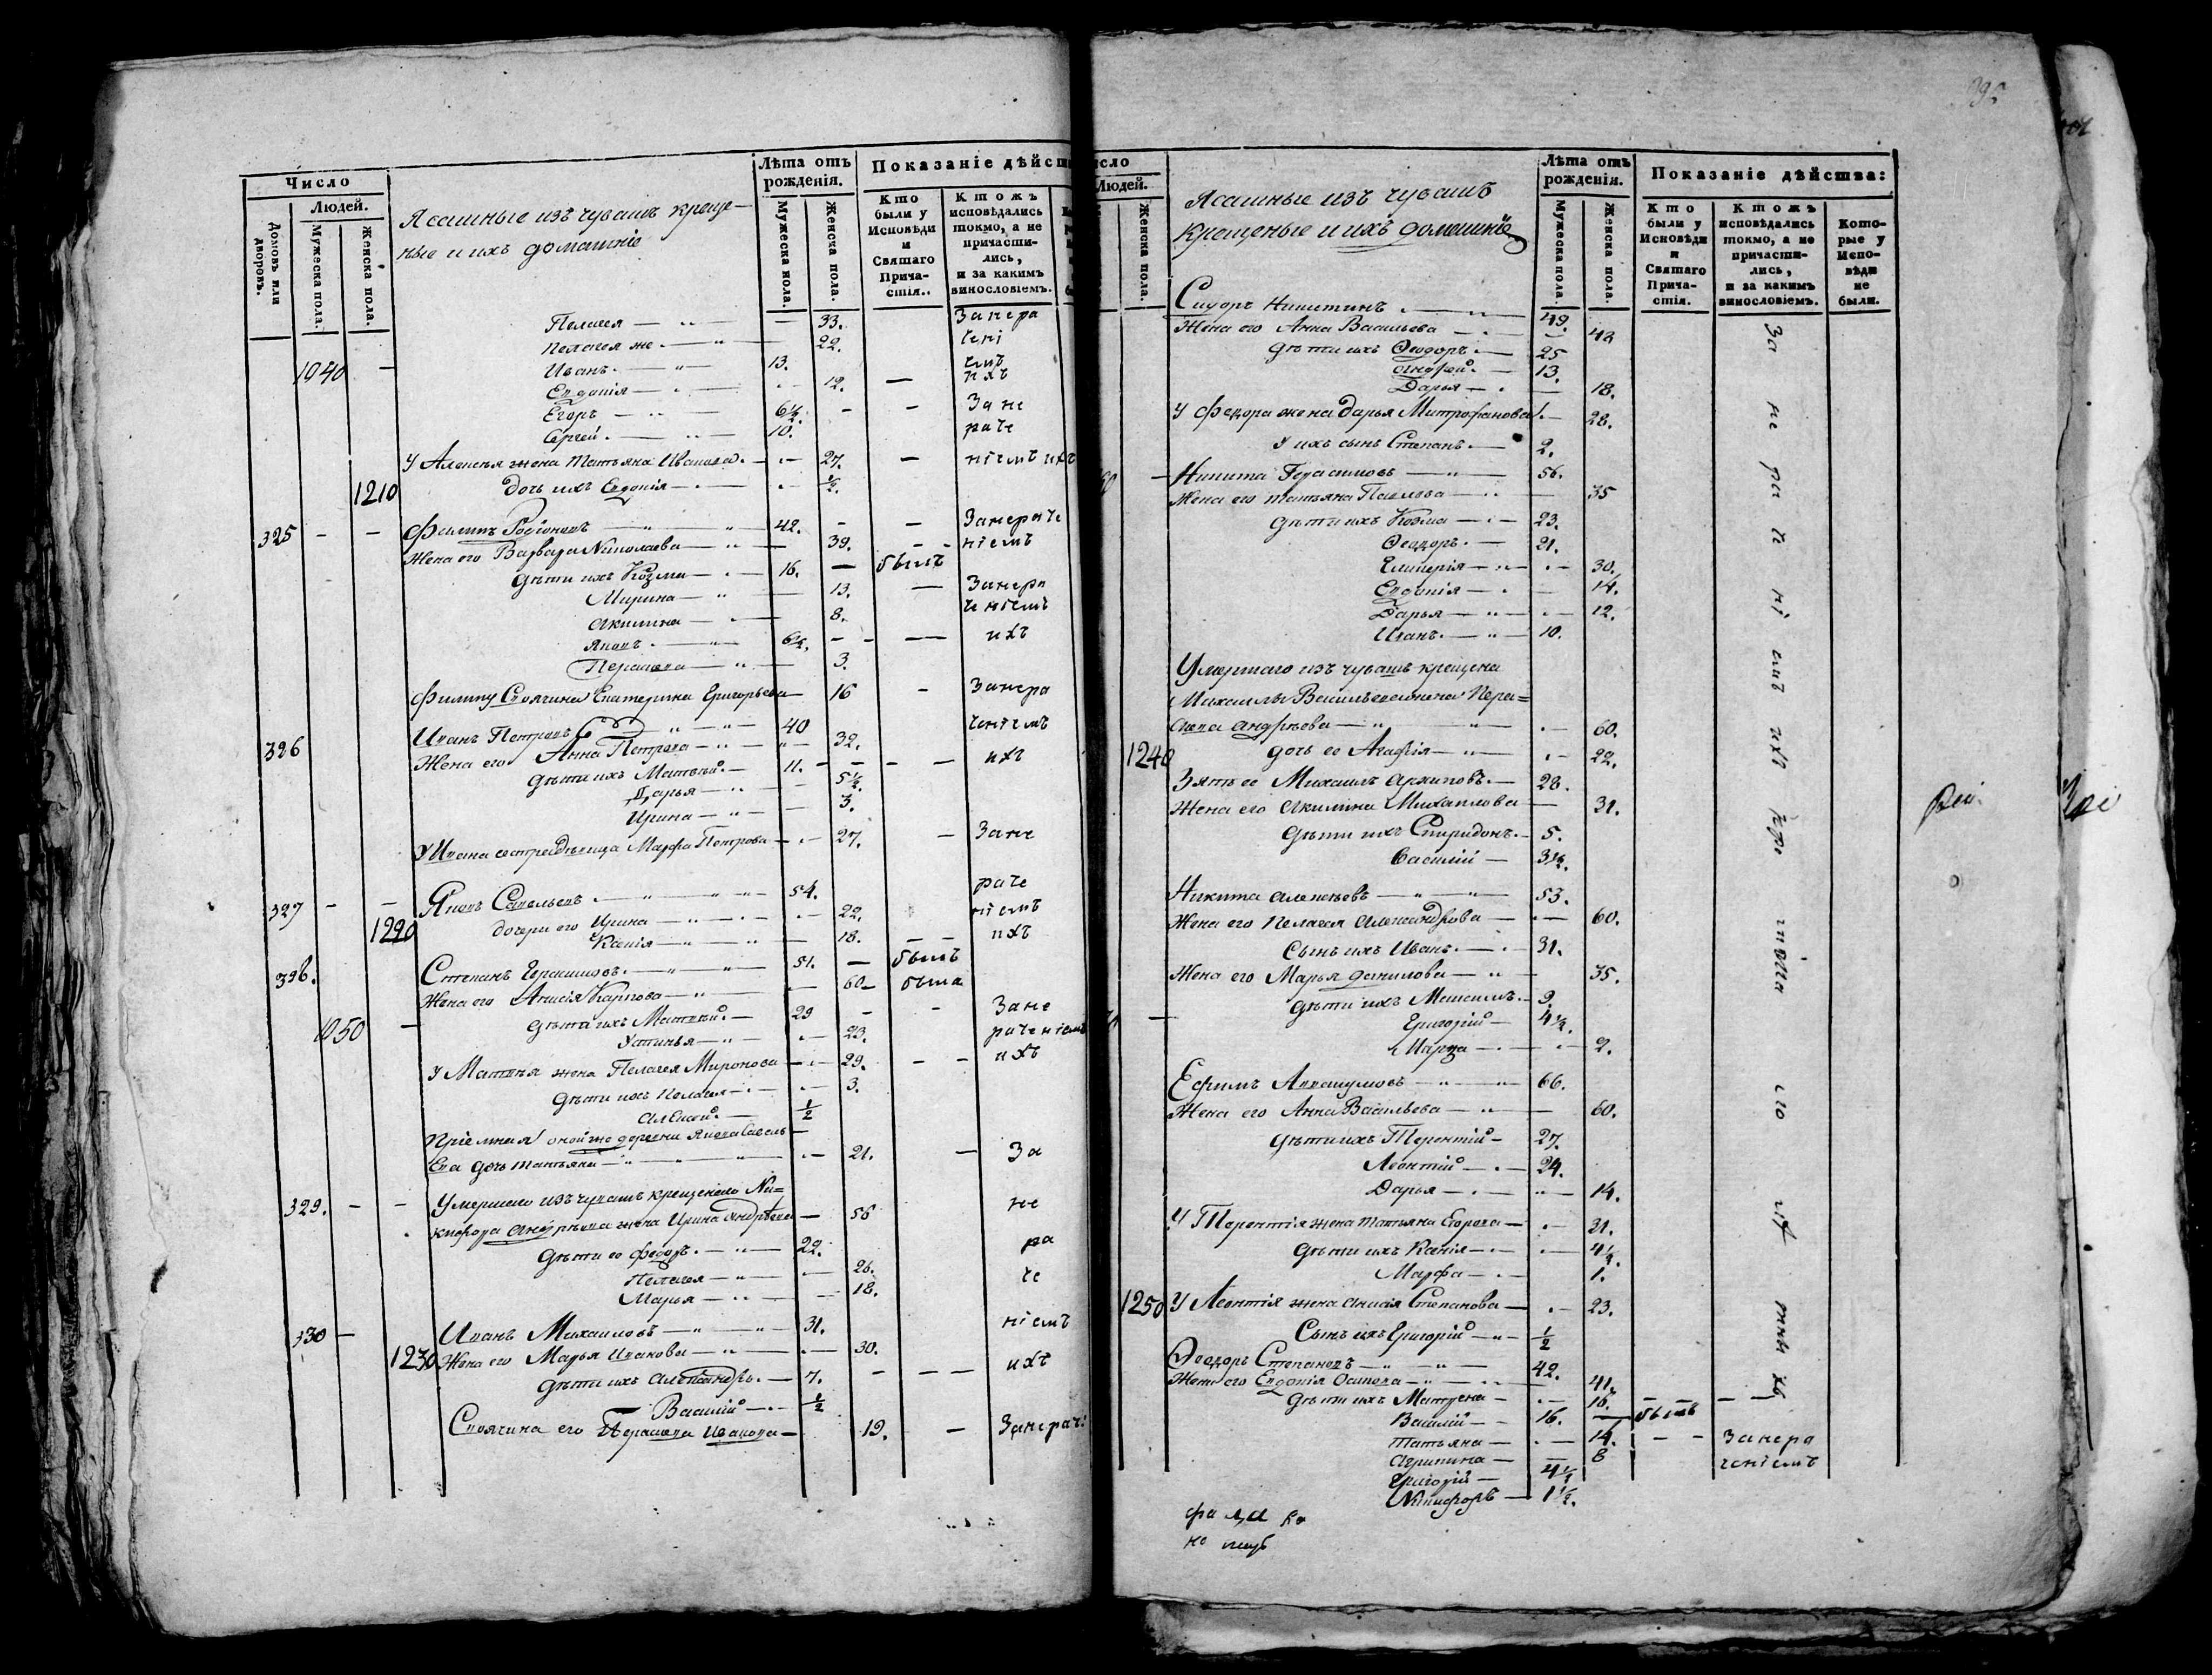 Число
Людей.
Домовъ или дворовъ.
Мужеска пола.
Женска пола.
Ясашные изъ чувашъ креще-
ные и ихъ домашніе
Лѣта отъ рожденія.
Мужеска пола.
Женска пола.
Показаніе дѣйс
Кто были у Исповѣди и Святаго Прича-стія..
Ктожъ исповѣдались токмо, а не причасти-лись, и за какимъ винословіемъ.
Пелагея — 33. Занера
Пелагея же — 22. чені
1040 Иванъ — 13. емъ
Евдокія — 12. ихъ
Егоръ — 6½ Зане
Сергей — 10. раче
У Алексея жена Татьяна Иванова — 27. ніемъ ихъ
1210 дочь ихъ Евдокія — ½.
325 Филипъ Родіоновъ — 42. Занераче
Жена его Варвара Николаева — 39. ніемъ
дѣти ихъ Козма — 16. былъ
Марина — 13. Занера
Акилина — 8. ченіемъ
Яковъ — 6½. ихъ
Парасковa — 3.
Филипу Своячина Екатерина Григорьева — 16 Занера
326 Иванъ Петровъ — 40 ченіемъ
Жена его Анна Петрова — 32. ихъ
дѣти ихъ Матвѣй — 11.
Дарья — 5½.
Ирина — 3.
У Ивана сестра дѣвица Марфа Петрова — 27. Зане
327 Яковъ Савельевъ — 54. раче
дочери его Ирина — 22. ніемъ
1220 Ксенія — 18. ихъ
328. Степанъ Герасимовъ — 51. былъ
Жена его Анисія Карпова — 60 была
1050 дѣти ихъ Матвѣй — 29 Зане
Устинья — 23. раченіемъ
У Матвея жена Пелагея Миронова — 29. ихъ
дѣти ихъ Пелагея — 3.
Алексей — ½
Пріемная оной же деревни Якова Савель
ева дочь Татьяна — 21. За
329. Умершаго изъ чувашъ крещенаго Ни=
кифора Андрѣева жена Ирина Андрѣева — 56 не
дѣти ее Федоръ — 22. ра
Пелагея — 26. че
Марья — 18.
330 Иванъ Михаиловъ — 31. ніемъ
1230 Жена его Марья Иванова — 30.
дѣти ихъ Александръ — 7. ихъ
Василій — ½
Своячина его Парасковa Иванова — 19. Занераче
Число
Людей.
Женска пола.
Ясашные изъ чувашъ
крещеные и ихъ домашніе
Лѣта отъ рожденія.
Мужеска пола.
Женска пола.
Показаніе дѣйства:
Кто были у Исповѣди и Святаго Прича-стія.
Ктожъ исповѣдались токмо, а не причасти-лись, и за какимъ винословіемъ.
Кото-рые у Испо-вѣди не были.
За не ра че ні емъ ихъ
Сидоръ Никитинъ — 49.
Жена его Анна Васильева — 48
дѣти ихъ Ѳеодоръ — 25
Андрей — 13.
Дарья — 18.
У Федора жена Дарья Митрофанова — 28.
У ихъ сынъ Степанъ — 2.
Никита Герасимовъ — 56.
Жена его Татьяна Павлова — 35
дѣти ихъ Козма — 23.
Ѳеодоръ — 21.
Гликерія — 30.
Евдокія — 14.
Дарья — 12.
Иванъ — 10.
Умершаго изъ чувашъ крещена
Михаилы Васильева жена Пара=
скева Андрѣева — 60.
1240 дочь ее Агафія — 22.
Зять ее Михаилъ Архиповъ — 28.
Жена его Акилина Михаилова — 31.
дѣти ихъ Спиридонъ — 5.
Василій — 3½.
Никита Алексеевъ — 53.
Жена его Пелагея Александрова — 60.
Сынъ ихъ Иванъ — 31.
Жена его Марья Данилова — 35.
дѣти ихъ Максимъ — 9.
Григорій — 4½.
Марѳа — 2.
Ефимъ — 66.
Жена его Анна Васильева — 60.
дѣти ихъ Терентій — 27.
Леонтій — 24.
Дарья — 14.
У Терентія жена Татьяна Егорова — 31.
дѣти ихъ Ксенія — 4½.
Марфа — 1.
1250 У Леонтія жена Анисія Степанова — 23.
Сынъ ихъ Григорій — ½
Ѳеодоръ Степановъ — 42.
Жена его Евдокія Осипова — 41.
дѣти ихъ Матрена — 18.
Василій — 16. былъ
Татьяна — 14. Занера
Агрипина — 8 ченіемъ
Григорій — 4½
Никифоръ — 1½.